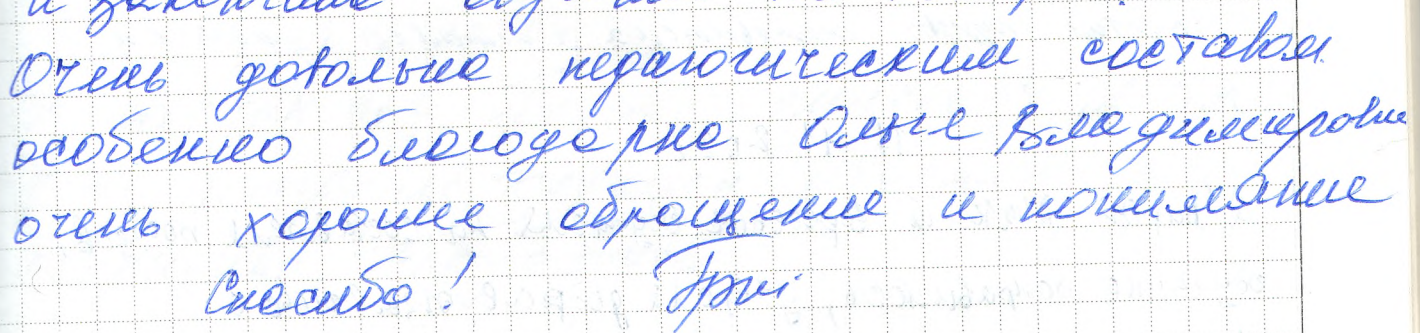 Очень довольна педагогическим составом.
особенно благодарна Ольге Владимировне
очень хорошие обращение и понимание
Спасибо!